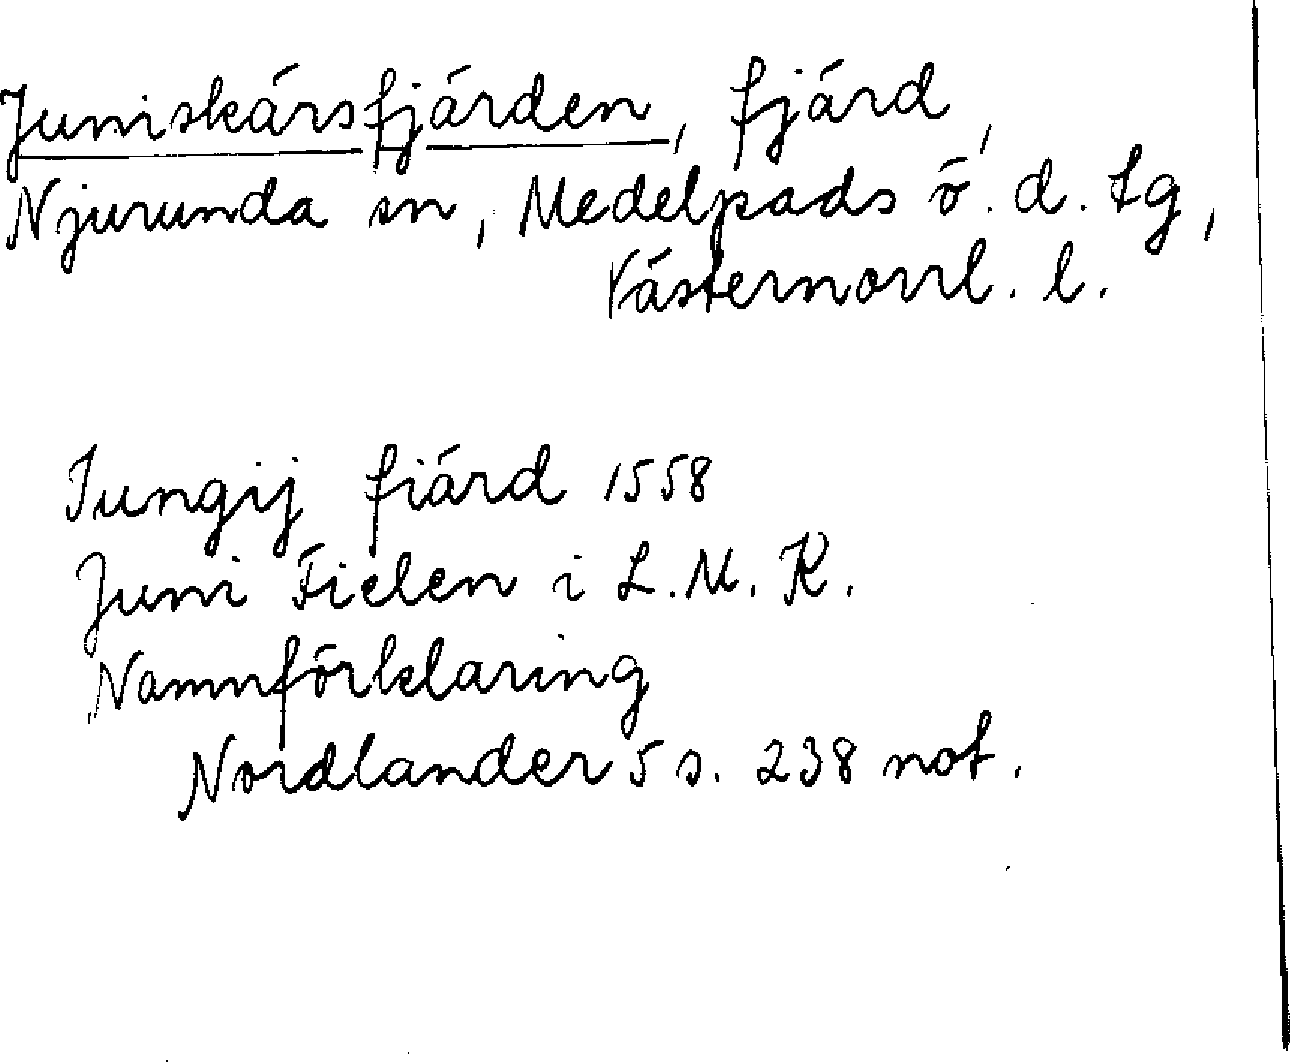 Juniskärsfjärden, fjärd,
Njurunda sn, Medelpads ö. d. tg,
Västernorrl. l.
Jungij fiärd 1558
Juni Fielen i L.M.K.
Namnförklaring
Nordlander 5 s. 238 not.